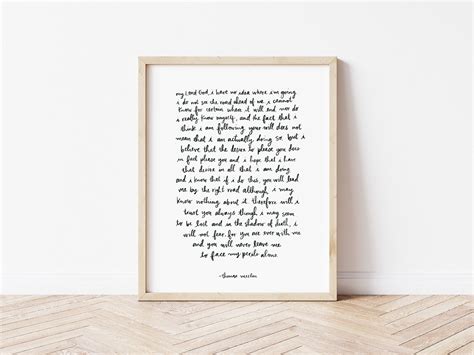 my Lord God, i have no idea where i'm going
i do not see the road ahead of me i cannot
know for certain where it will end nor do
i really know myself, and the fact that i
think i am following your will does not
mean that i am actually doing so. but i
believe that the desire to please you does
in fact please you and i hope that i have
that desire in all that i am doing
and i know that if i do this, you will lead
me by the right road although i may
know nothing about it. therefore will i
trust you always though i may seem
to be lost and in the shadow of death, i
will not fear, for you are ever with me
and you will never leave me
to face my perils alone.
-thomas merton